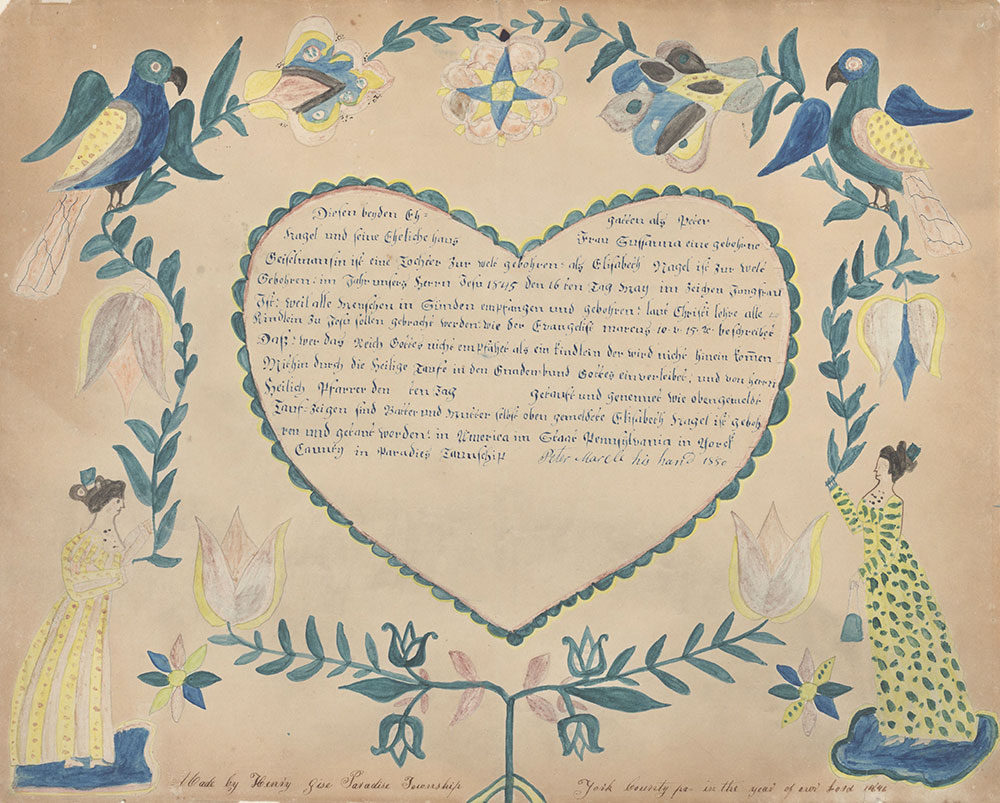 Diesen beyden Eh= gatten als Peter
Nagel und seine Eheliche haus Frau Sussanna eine gebohrne
Geiselmansin ist eine Tochter zur welt gebohren: als Elisabeth Nagel ist zur welt
Gebohren: im Jahr unsers Herrn Jesu 1845 den 16ten Tag May im zeichen Jungfrau
Ist: weil alle Menschen in Sünden empfangen und gebohren: laut Christi lehre alle
Kindlein zu Jesu sollen gebracht werden: wie der Evangelist marcus 10. v. 15. beschreibet
Daß: wer das Reich Gottes nicht empfähet als ein kindlein der wird nicht hinein kommen
Mithin durch die Heilige Taufe in den Gnadenbund Gottes einverleibet, und von herrn
Heilich Pfarrer den ten Tag Getauft und genennet wie obengemeldt
Tauf-Zeigen sind Vatter und Mutter selbst oben gemeldete Elisabeth Nagel ist geboh
ren und getauft worden: in America im Staat Pennsylvania in Yorck
Caunty in Paradies Taunschip Peter his hand
Made by Henry Gise Paradise Township York County pa- in the year of owr Lord 1846